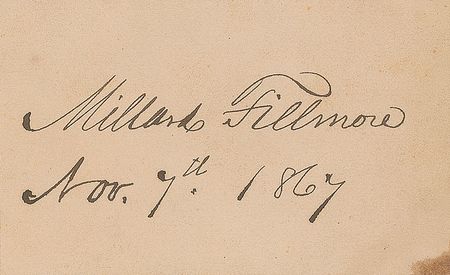 Millard Fillmore
Nov. 7th. 1867